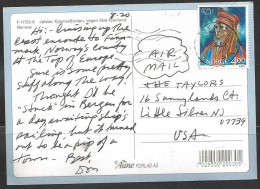 F-11722-5
8-20
Hi:- Cruising up the
coast
Norway's County
at the Top of Europe.
Sure is some pretty
stuff along the way!
Thought I'd be
"stuck" in Bergen for
a day awaiting ship's
sailing, but it turned
out to be a pip of a
town. Best,
Don
AIR
MAIL
NORGE 4.00
THE TAYLORS
16 Sunnylands Cir.
Little Silver NJ
07739
USA
Aune FORLAG AS